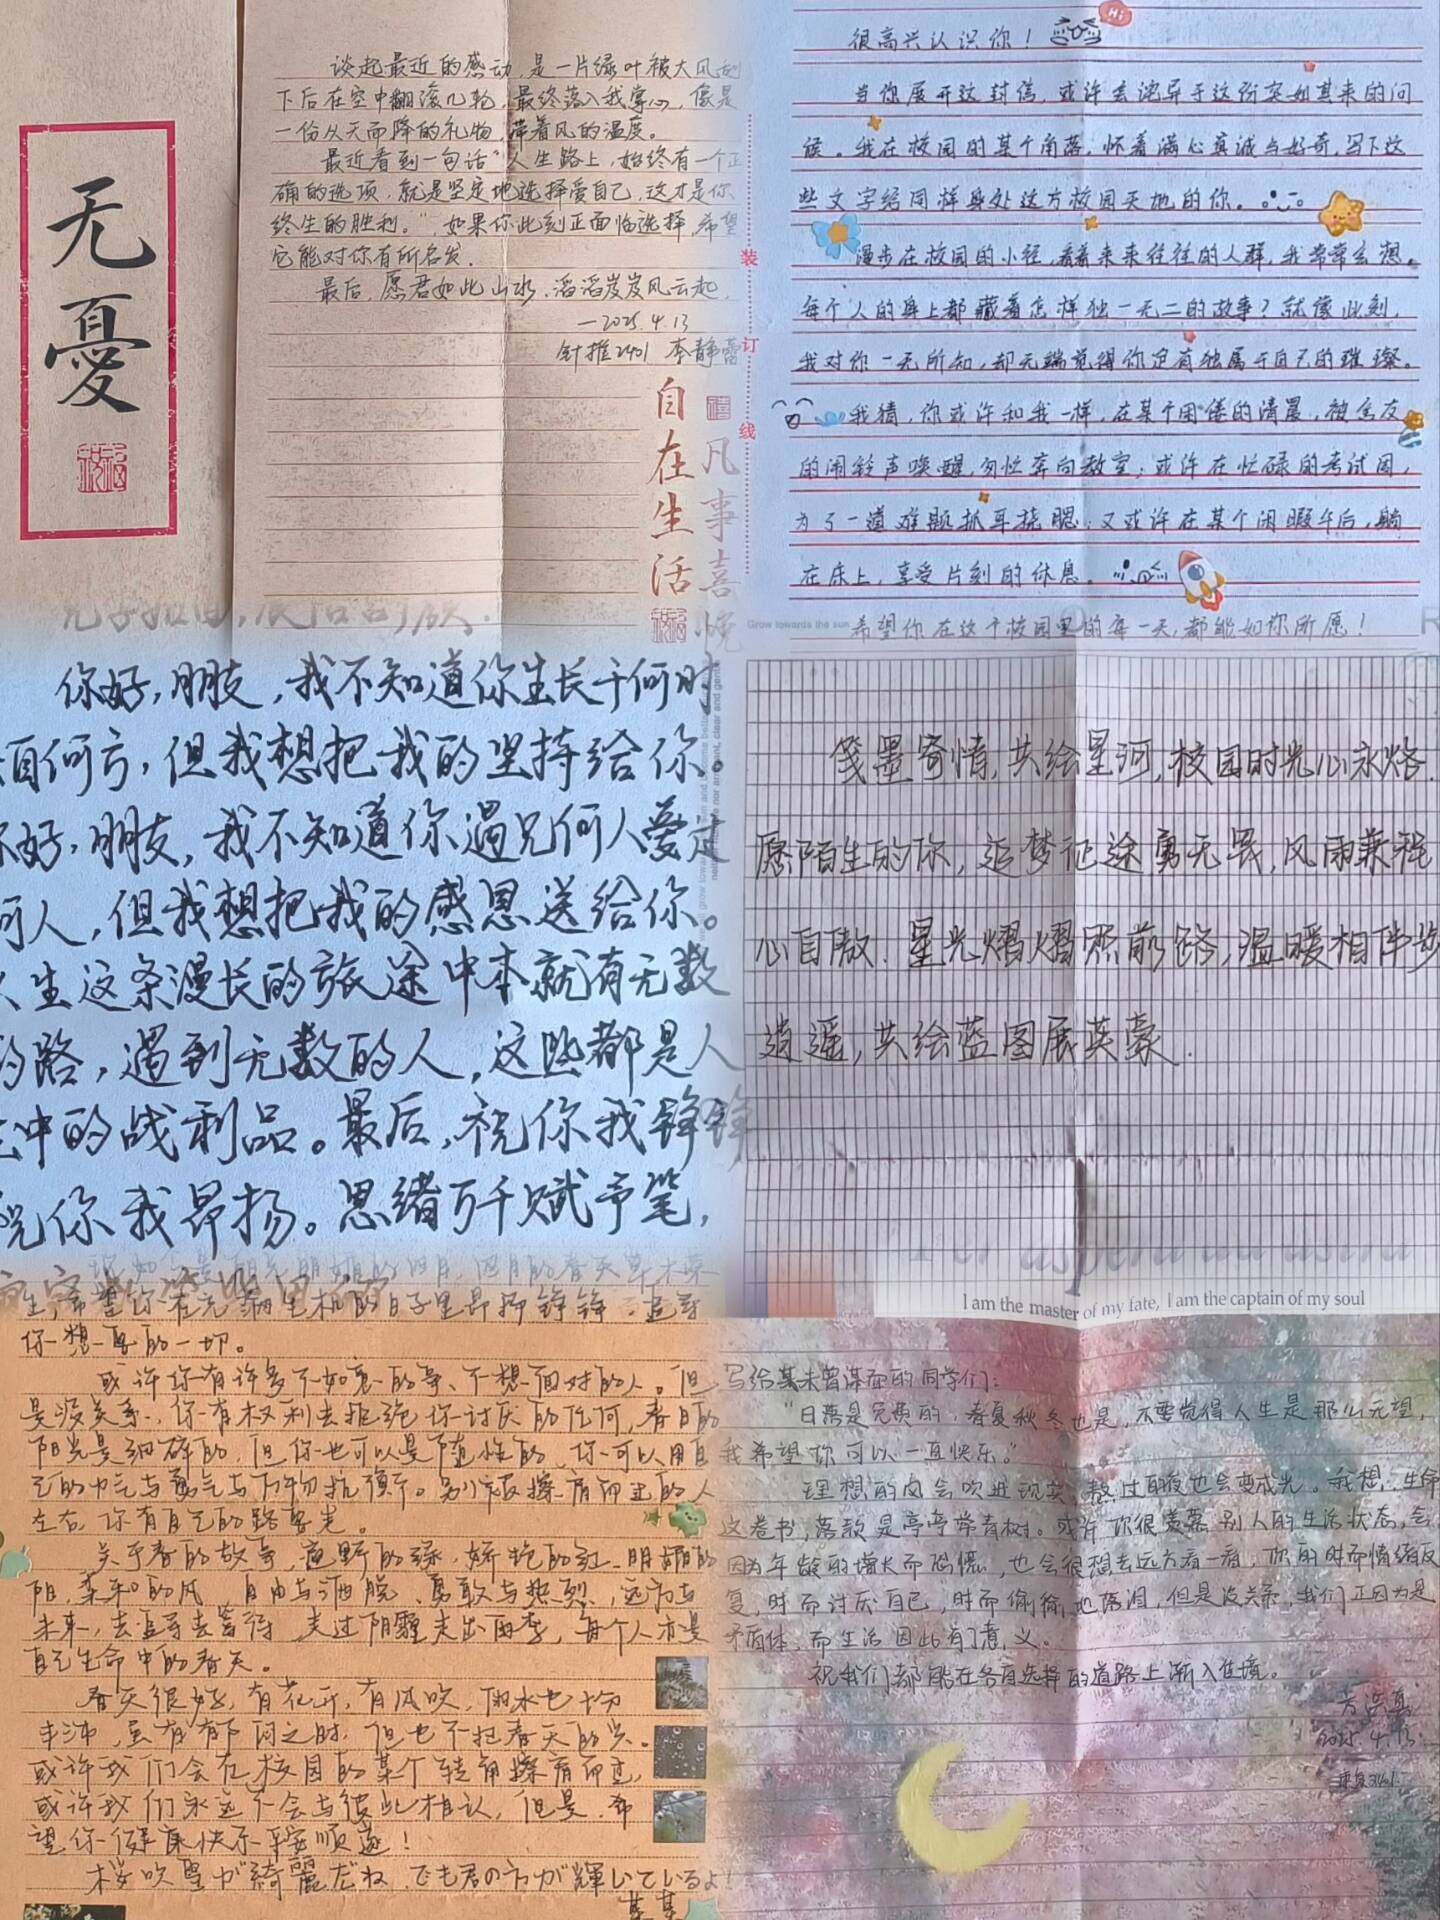 无
憂
谈起最近的感动,是一片绿叶被大风刮
下后在空中翻滚几轮,最终落入我掌心,像是
一份从天而降的礼物,带着风的温度。
最近看到一句话“人生路上,始终有一个正
确的选项,就是坚定地选择爱自己,这才是你
终生的胜利。”如果你此刻正面临选择,希望
它能对你有所启发.
最后,愿君如此山水,滔滔岌岌风云起.
—2025.4.13
针推2401 李静蕾
自在生活
凡事喜悦
装
订
线
Hi
很高兴认识你!
当你展开这封信,或许会诧异于这份突如其来的问
候。我在校园的某个角落,怀着满心真诚与好奇,写下这
些文字给同样身处这方校园天地的你。
漫步在校园的小径,看着来来往往的人群,我常常会想。
每个人的身上都藏着怎样独一无二的故事?就像此刻,
我对你一无所知,却无端觉得你定有独属于自己的璀璨。
我猜,你或许和我一样,在某个困倦的清晨,被舍友
的闹铃声唤醒,匆忙奔向教室;或许在忙碌的考试周,
为了一道难题抓耳挠腮;又或许在某个闲暇午后,躺
在床上,享受片刻的休息。
Grow towards the sun
希望你在这个校园里的每一天,都能如你所愿!
你好,朋友,我不知道你生长于何时
自何方,但我想把我的坚持给你。
你好,朋友,我不知道你遇见何人爱过
何人,但我想把我的感恩送给你。
人生这条漫长的旅途中本就有无数
的路,遇到无数的人,这些都是人
生中的战利品。最后,祝你我铮铮
祝你我昂扬。思绪万千赋予笔,
笺墨寄情,共绘星河,校园时光心永烙.
愿陌生的你,追梦征途勇无畏,风雨兼程
心自傲.星光熠熠照前路,温暖相伴步
逍遥,共绘蓝图展英豪.
I am the master of my fate, I am the captain of my soul
生,希望你在充满生机的日子里昂扬铮铮,追寻
你想要的一切。
或许你有许多不如意的事、不想面对的人。但
是没关系,你有权利去拒绝你讨厌的任何,春日的
阳光是细碎的,但你也可以是随性的,你可以用自
己的力气与勇气与万物抗衡。别被擦肩而过的人
左右,你有自己的路要走。
关于春的故事,遍野的绿,娇艳的红,明媚的
阳,柔和的风,自由与洒脱,勇敢与热烈,远方与
未来,去追寻去等待,走过阴霾走出雨季,每个人亦是
自己生命中的春天。
春天很好,有花开,有风吹,雨水也十分
丰沛,虽有郁闷之时,但也不扫春天的兴。
或许我们会在校园的某个转角擦肩而过,
或许我们永远不会与彼此相认,但是,希
望你健康快乐平安顺遂!
桜吹雪が綺麗だね、でも君の方が輝いているよ!
某某
写给某未曾谋面的同学们:
“日落是免费的,春夏秋冬也是,不要觉得人生是那么无望,
我希望你可以一直快乐。”
理想的风会吹进现实,熬过的夜也会变成光。我想,生命
这卷书,落款是亭亭常青树。或许你很羡慕别人的生活状态,会
因为年龄的增大而恐慌,也会很想去远方看一看,你的时而情绪反
复,时而讨厌自己,时而偷偷地落泪,但是没关系,我们正因为是
矛盾体,而生活因此有了意义。
祝我们都能在各自选择的道路上渐入佳境。
2025.4.13